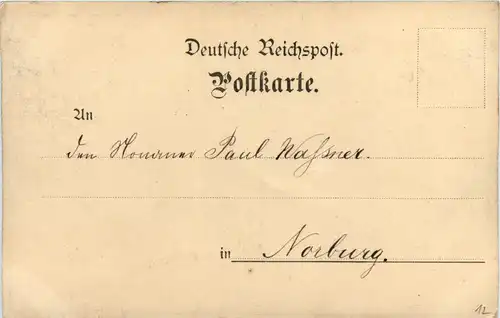 Deutsche Reichspost.
Postkarte.
An
den Paul Wassner.
in Norburg.
12